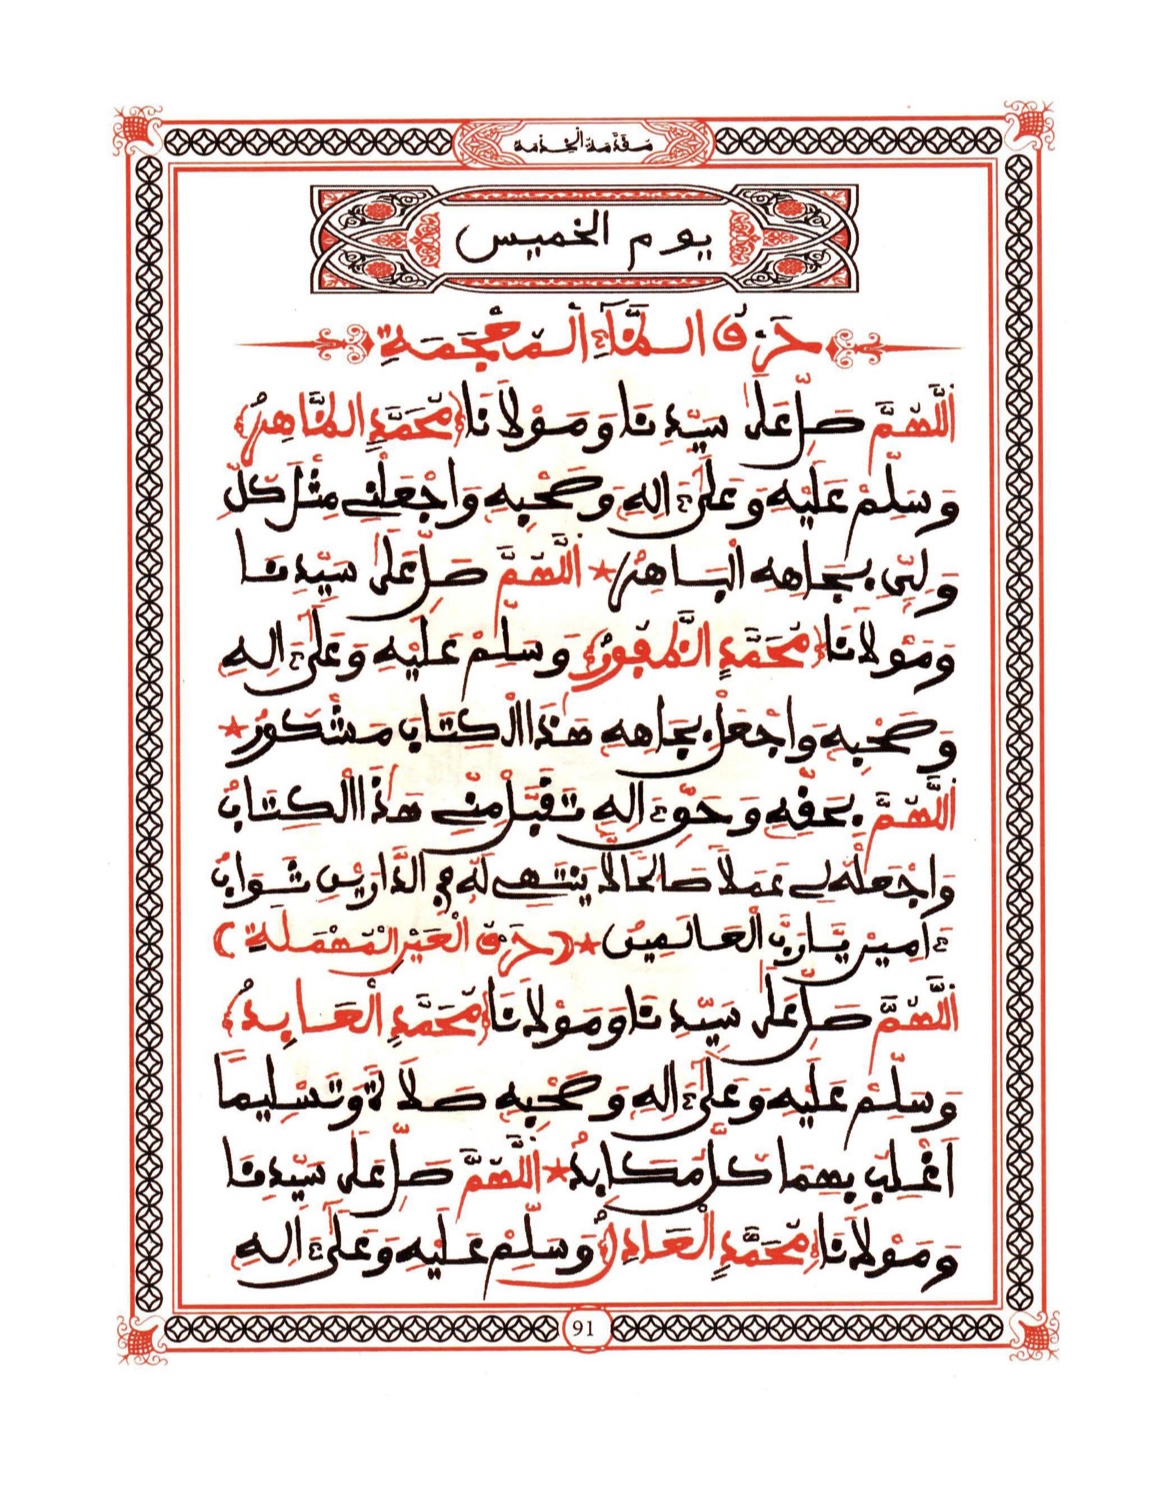 مقدمة الخدمة
يوم الخميس
حرف الظاء المعجمة
اللهم صل على سيدنا ومولانا (محمد الظاهر)
وسلم عليه وعلى ءاله وصحبه واجعلني مثل كل
ولي بجاهه الباهر * اللهم صل على سيدنا
ومولانا (محمد الظفور) وسلم عليه وعلى ءاله
وصحبه واجعل بجاهه هذا الكتاب مشكور *
اللهم بحقه وحق ءاله تقبل مني هذا الكتاب
واجعله لي عملا صالحا لا ينتهي له في الدارين ثواب
ءامين يا رب العالمين * (حرف العين المهملة)
اللهم صل على سيدنا ومولانا (محمد العابد)
وسلم عليه وعلى ءاله وصحبه صلاة وتسليما
أغلب بهما كل مكابد * اللهم صل على سيدنا
ومولانا (محمد العادل) وسلم عليه وعلى ءاله
91